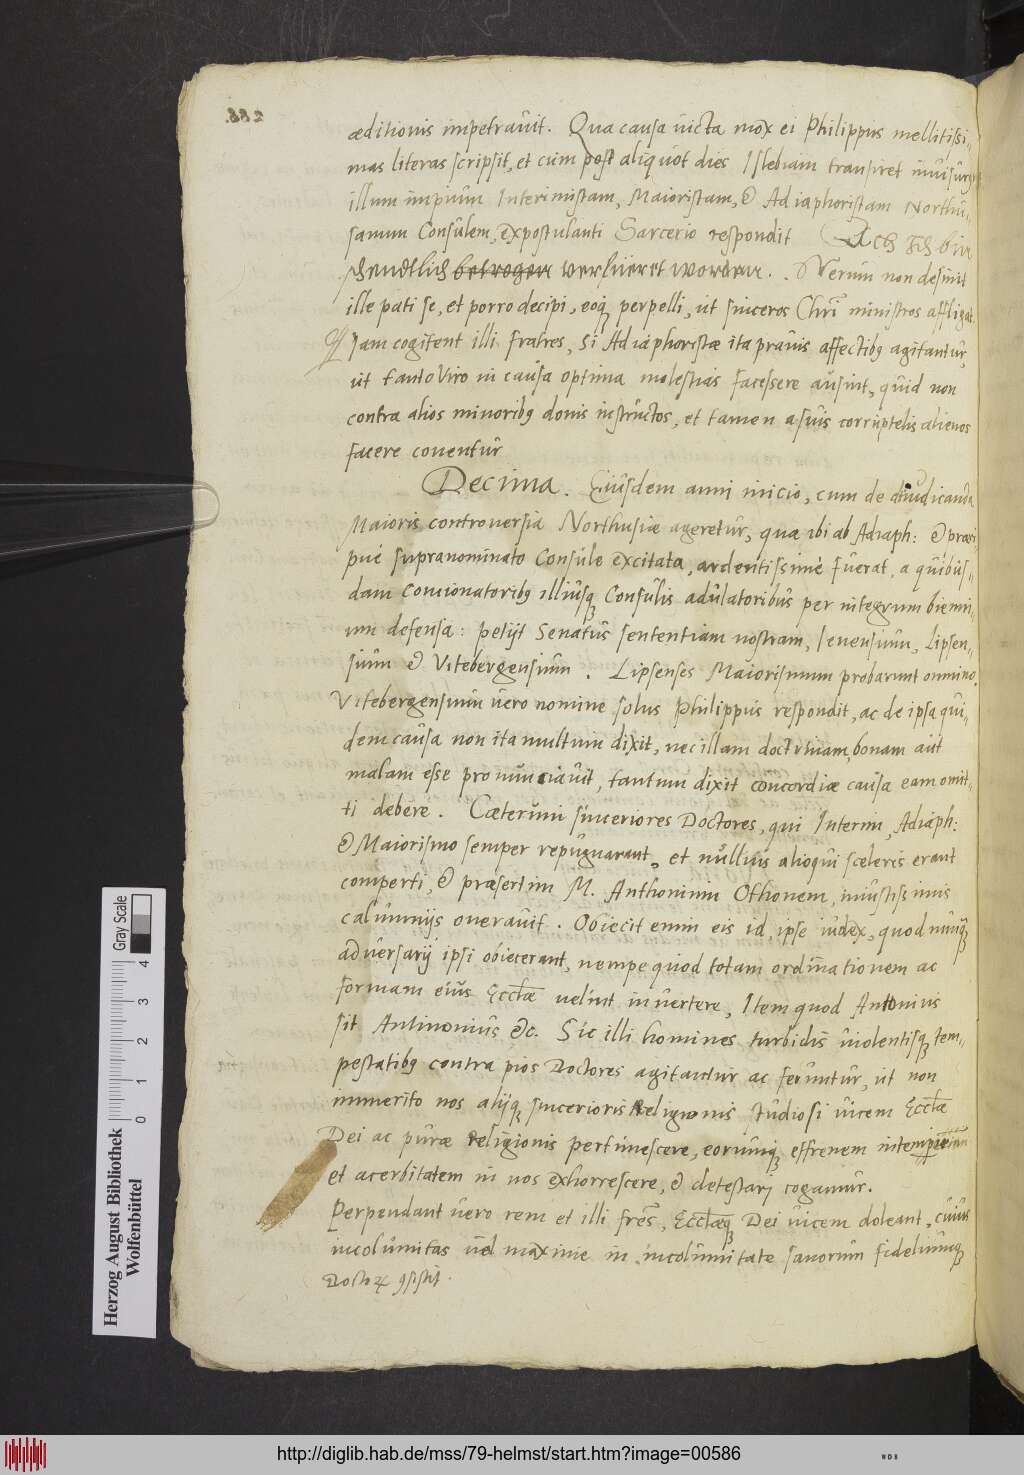 288.
æditionis impetravit. Qua causa victa mox ei Philippus mellitissi-
mas literas scripsit, et cum post aliquot dies Islebiam transiret invisurus
illum impium Interimistam, Maioristam, & Adiaphoristam Northu-
sanum Consulem, expostulanti Sarcerio respondit Ach Ich bin
schendtlich betrogen verfüeret worden. Verum non desinit
ille pati se, et porro decipi, eoq perpelli, ut sinceros Chri ministros affligat.
Iam cogitent illi fratres, si Adiaphoristæ ita pravis affectibq agitantur,
ut tanto Viro in causa optima molestias facessere ausint, quid non
contra alios minoribq donis instructos, et tamen a suis corruptelis alienos
facere conentur
Decima. Eiusdem anni inicio, cum de diiudicanda
Maioris controversia Northusiæ ageretur, quæ ibi ab Adiaph: & præci-
pué supranominato Consule excitata, ardentissimè fuerat, a quibus-
dam concionatoribq illiusq Consulis adulatoribus per integrum bienni-
um defensa: petijt Senatus sententiam nostram, Ienensium, Lipsen-
sium & Vitebergensium. Lipsenses Maiorismum probarunt omnino.
Vitebergensium vero nomine solus Philippus respondit, ac de ipsa qui-
dem causa non ita multum dixit, nec illam doctrinam, bonam aut
malam esse pronunciavit, tantum dixit concordiæ causa eam omit-
ti debere. Cæterum sinceriores Doctores, qui Interim, Adiaph:
& Maiorismo semper repugnarant, et nullius alioqui sceleris erant
comperti, & præsertim M. Anthonium Othonem, iniustissimis
calumnijs oneravit. Obiecit enim eis id, ipse iudex, quod nunq
adversarij ipsi obiecerant, nempe quod totam ordinationem ac
formam eius Eccłæ velint invertere, Item quod Antonius
sit Antinomus &c. Sic illi homines turbidis violentisq tem-
pestatibq contra pios Doctores agitantur ac feruntur, ut non
immerito nos alijq sincerioris Religionis studiosi vicem Eccłæ
Dei ac puræ religionis pertimescere, eorumq effrenem intemperiem
et acerbitatem in nos exhorrescere, & detestarj cogamur.
Perpendant vero rem et illi frēs, Eccłæq Dei vicem doleant, cuius
incolumitas vel maxime in incolumitate sanorum fideliumq
Doctoꝝ ꝯsistit.
Herzog August Bibliothek
Wolfenbüttel
Gray Scale
0 1 2 3 4
http://diglib.hab.de/mss/79-helmst/start.htm?image=00586
WDB